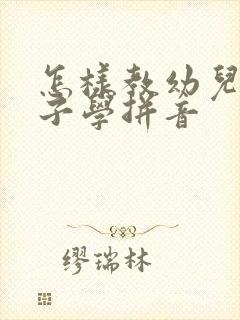 怎樣教幼兒
子學拼音
缪瑞林